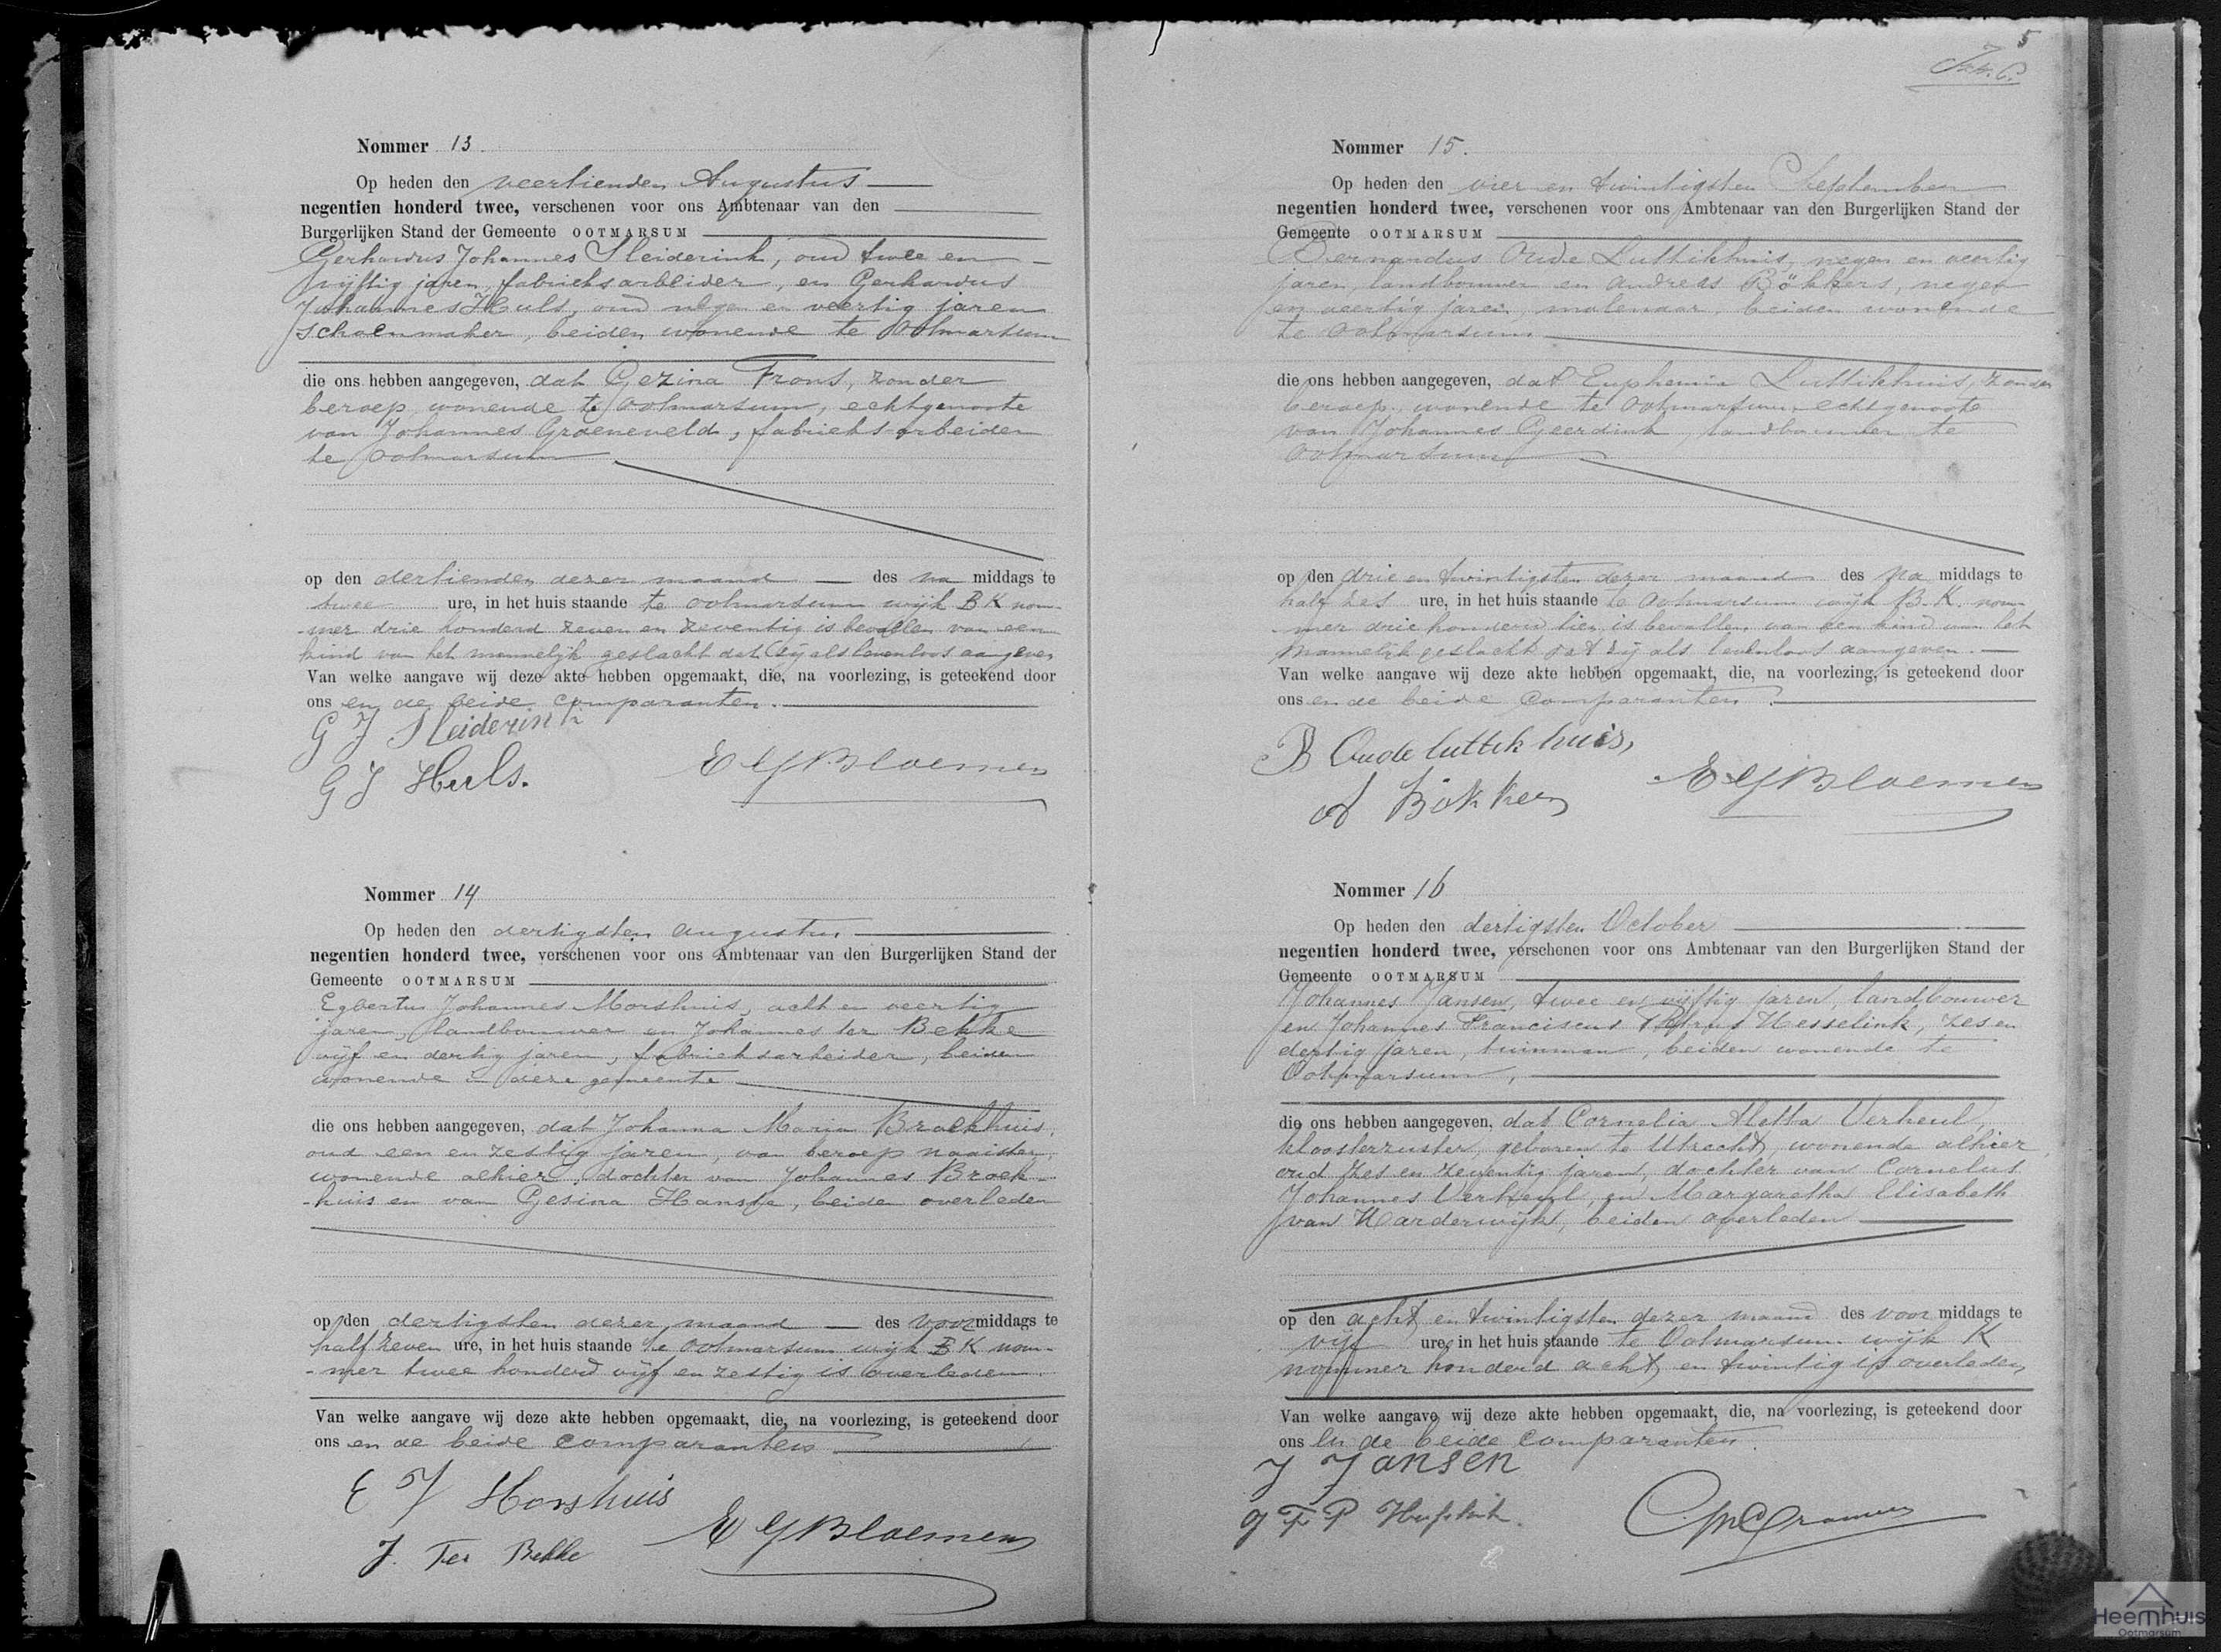 Nommer 13.
Op heden den veertienden Augustus
negentien honderd twee, verschenen voor ons Ambtenaar van den
Burgerlijken Stand der Gemeente OOTMARSUM
Gerhardus Johannes Sleiderink, oud twee en
vijftig jaren, fabrieksarbeider, en Gerhardus
Johannes Huls, oud negen en veertig jaren
schoenmaker, beiden wonende te Ootmarsum
die ons hebben aangegeven, dat Gezina Frons, zonder
beroep wonende te Ootmarsum, echtgenoote
van Johannes Groeneveld, fabrieksarbeider
te Ootmarsum
op den dertienden dezer maand des na middags te
twee ure, in het huis staande te Ootmarsum wijk B K nom-
-mer drie honderd zeven en zeventig is bevallen van een
kind van het mannelijk geslacht dat zij als levenloos aangeven
Van welke aangave wij deze akte hebben opgemaakt, die, na voorlezing, is geteekend door
ons en de beide comparanten.
G J Sleiderink
G J Huls.
E G Bloemen
Nommer 14
Op heden den dertigsten Augustus
negentien honderd twee, verschenen voor ons Ambtenaar van den Burgerlijken Stand der
Gemeente OOTMARSUM
Egbertus Johannes Morshuis, acht en veertig
jaren, landbouwer en Johannes ter Bekke
vijf en dertig jaren, fabrieksarbeider, beiden
wonende in deze gemeente
die ons hebben aangegeven, dat Johanna Maria Broekhuis,
oud een en zestig jaren, van beroep naaister,
wonende alhier, dochter van Johannes Broek-
-huis en van Gesina Hanstje, beiden overleden
op den dertigsten dezer maand des voor middags te
half zeven ure, in het huis staande te Ootmarsum wijk B K nom-
-mer twee honderd vijf en zestig is overleden.
Van welke aangave wij deze akte hebben opgemaakt, die, na voorlezing, is geteekend door
ons en de beide comparanten
E J Morshuis
J. Ter Bekke
E G Bloemen
5
Nommer 15.
Op heden den vier en twintigsten September
negentien honderd twee, verschenen voor ons Ambtenaar van den Burgerlijken Stand der
Gemeente OOTMARSUM
Bernardus Oude Luttikhuis, negen en veertig
jaren, landbouwer en Andreas Bökkers, negen
en veertig jaren, molenaar, beiden wonende
te Ootmarsum
die ons hebben aangegeven, dat Euphemia Luttikhuis, zonder
beroep, wonende te Ootmarsum, echtgenoote
van Johannes Geerdink, landbouwer te
Ootmarsum
op den drie en twintigsten dezer maand des na middags te
half zes ure, in het huis staande te Ootmarsum wijk B.K. nom-
-mer drie honderd tien is bevallen van een kind van het
mannelijk geslacht dat zij als levenloos aangeven.
Van welke aangave wij deze akte hebben opgemaakt, die, na voorlezing, is geteekend door
ons en de beide Comparanten.
B Oude luttikhuis,
A Bökkers
E G Bloemen
Nommer 16
Op heden den dertigsten October
negentien honderd twee, verschenen voor ons Ambtenaar van den Burgerlijken Stand der
Gemeente OOTMARSUM
Johannes Jansen, twee en vijftig jaren, landbouwer
en Johannes Franciscus Petrus Hesselink, zes en
dertig jaren, tuinman, beiden wonende te
Ootmarsum,
die ons hebben aangegeven, dat Cornelia Aletta Verheul,
kloosterzuster, geboren te Utrecht, wonende alhier,
oud zes en zeventig jaren, dochter van Cornelus
Johannes Verheul, en Margaretha Elisabeth
van Harderwijk, beiden overleden
op den acht en twintigsten dezer maand des voor middags te
vijf ure, in het huis staande te Ootmarsum wijk K
nommer honderd acht en twintig is overleden
Van welke aangave wij deze akte hebben opgemaakt, die, na voorlezing, is geteekend door
ons en de beide comparanten.
J Jansen
J F P Hesselink.
Heemhuis
Ootmarsum